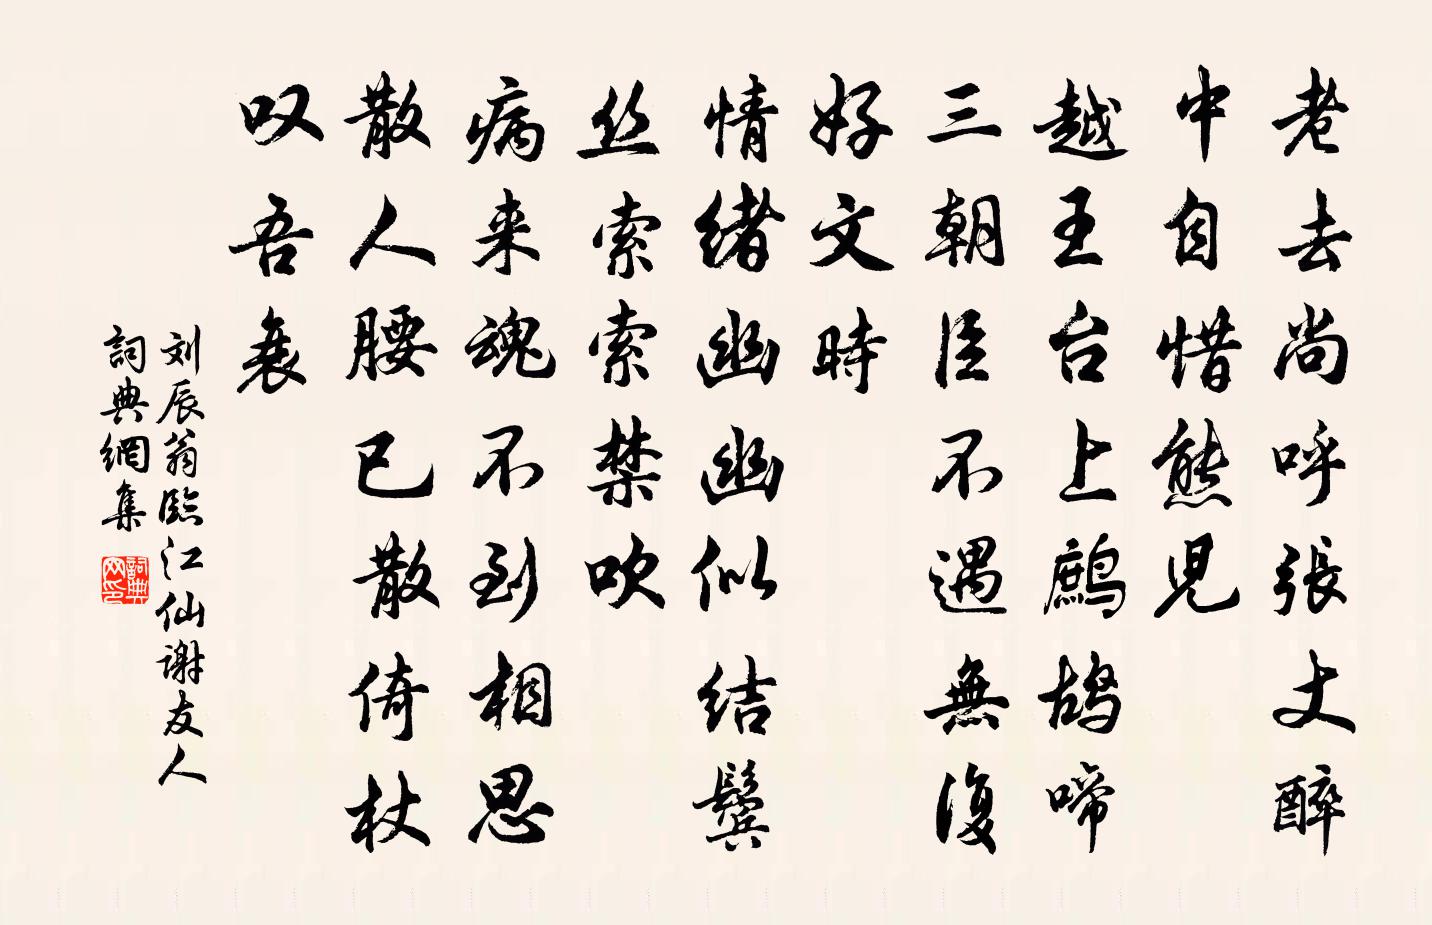 老去尚呼張丈醉
中自惜熊児
越王台上鷓鴣啼
三朝臣不遇無復
好文時
情緒幽幽似结鬓
丝索索禁吹
病来魂不到相思
散人腰已散倚杖
叹吾衰
刘辰翁臨江仙谢友人
詞典網集
詞典网印